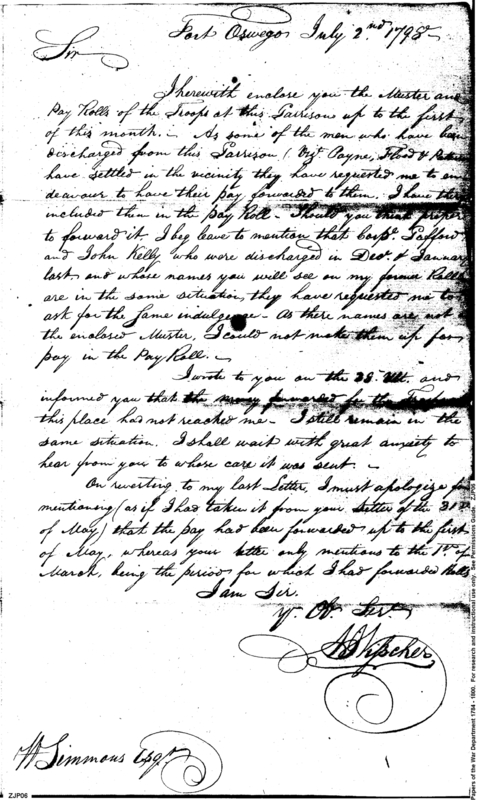 Fort Oswego July 2nd 1798
Sir
I herewith enclose you the Muster and
Pay Rolls of the Troops at this Garrison up to the first
of this month. – As some of the men who have been
discharged from this Garrison (Vizt. Payne, Flood &
have settled in the vicinity they have requested me to en
deavour to have their pay forwarded to them. I have
included them in the pay Roll – Should you think proper
to forward it I beg leave to mention that Corpl. Pafford
and John Kelly who were discharged in Decr. & January
last and whose names you will see on my former Rolls
are in the same situation, they have requested me to
ask for the same indulgence – As these names are not
the enclosed Muster, I could not make them up for
pay in the Pay Roll. –
I wrote to you on the 22 Ult. and
informed you that the money forwarded for the Troops
this place had not reached me – I still remain in the
same situation. I shall wait with great anxiety to
hear from you to whose care it was sent. –
On reverting to my last Letter, I must apologize for
mentioning (as if I had taken it from your Letter of the 31st
of May) that the pay had been forwarded up to the first
of May, whereas your letter only mentions to the 1st of
March, being the period for which I had forwarded Rolls
I am Sir.
yr. Ob. Servt.
Visscher
W Simmons Esqr.
ZJP06
Papers of the War Department 1784 - 1800. For research and instructional use only. See Permission Guide. ZJP06